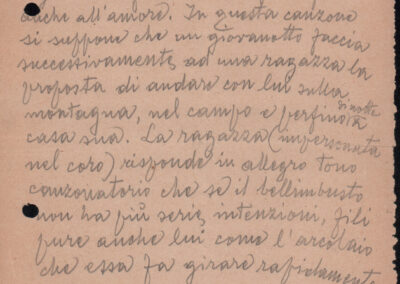 anche all'amore. In questa canzone
si suppone che un giovanotto faccia
successivamente ad una ragazza la
proposta di andare con lui sulla
montagna, nel campo e perfino di notte a
casa sua. La ragazza (impersonata
nel coro) risponde in allegro tono
canzonatorio che se il bellimbusto
non ha più serie intenzioni, fili
pure anche lui come l'arcolaio
che essa fa girare rapidamente